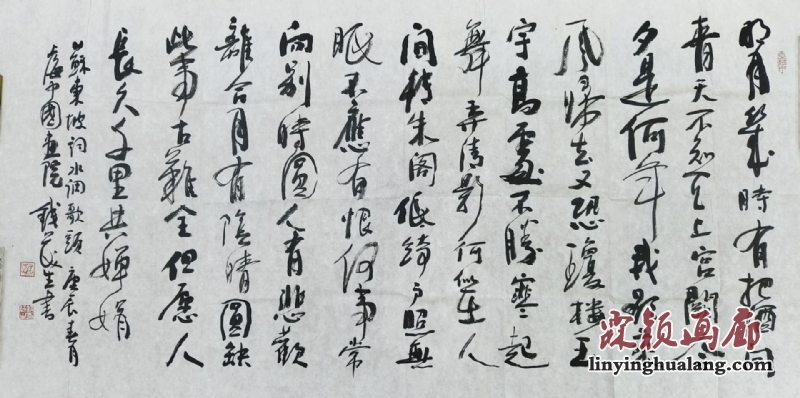 明月幾時有把酒問
青天不知天上宮闕今
夕是何年我欲乘
風歸去又恐瓊樓玉
宇高處不勝寒起
舞弄清影何似在人
間轉朱阁低綺戶照無
眠不應有恨何事常
向别時圓人有悲歡
離合月有陰晴圓缺
此事古難全但愿人
長久千里共嬋娟
蘇東坡詞水调歌頭 庚辰春月
中國画院 生书
霖颖画廊
linyinghualang.com